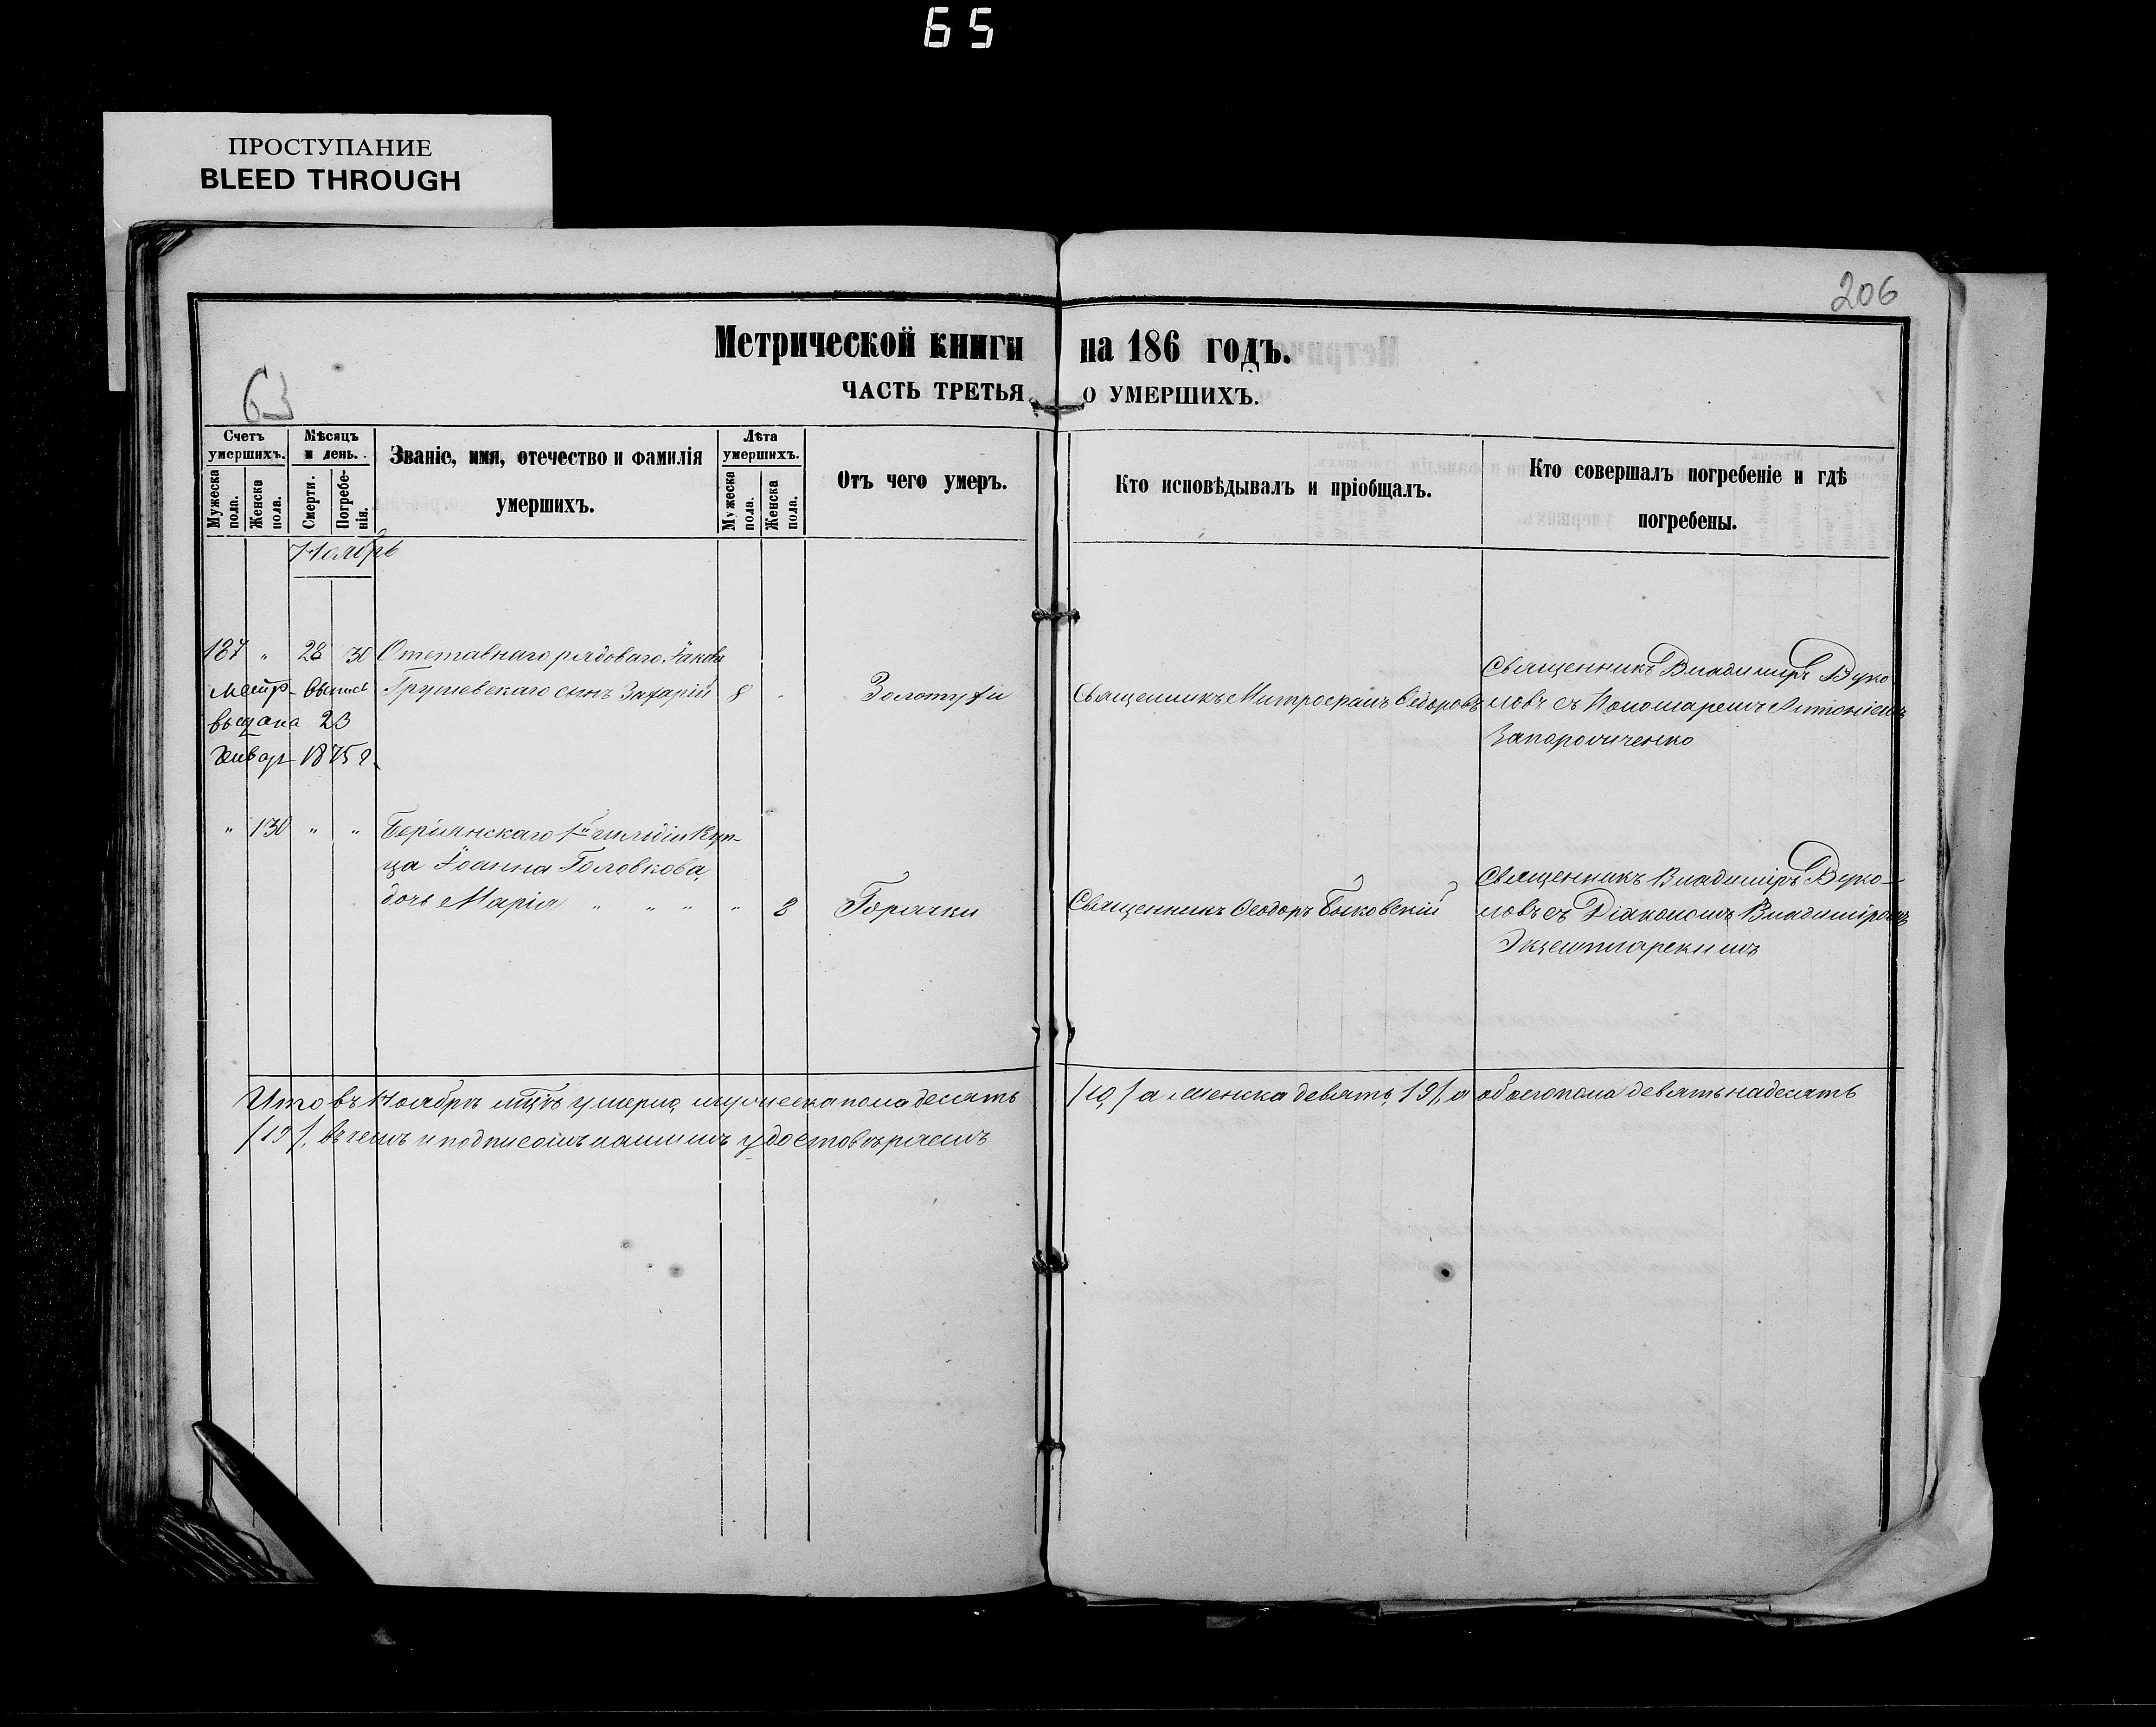 65
ПРОСТУПАНИЕ
BLEED THROUGH
206
Метрической книги на 186 годъ.
63
ЧАСТЬ ТРЕТЬЯ, О УМЕРШИХЪ.
Счетъ умершихъ.
Мужеска пола.
Женска пола.
Мѣсяцъ и день.
Смерти.
Погребенія.
Званіе, имя, отечество и фамилія
умершихъ.
Лѣта умершихъ.
Мужеска пола.
Женска пола.
Отъ чего умеръ.
Кто исповѣдывалъ и пріобщалъ.
Кто совершалъ погребеніе и гдѣ
погребены.
Ноябрь
187 " 28 30 Отставнаго рядоваго Іакова
Грушевскаго сынъ Захарій 8 - Золотухи
Метр. выпис
выдана 23
Январ 1875 г.
Священникъ Митрофанъ Ѳедоровъ
Священникъ Владимиръ Вуко
ловъ съ Пономаремъ Антоніемъ
" 130 " " Бердянскаго 1й гильдіи Куп-
ца Іоанна Головкова,
дочь Марія " " " " 8 Горячки
Священникъ Ѳеодоръ Быковскій
Священникъ Владиміръ Вуко-
ловъ съ Діакономъ Владиміромъ
Итого въ Ноябрѣ мцѣ умерло мужеска пола десять /10/ а женска девять, /9/, а обоего пола девятьнадесять
/19/, въ чемъ и подписомъ нашимъ удостовѣряемъ